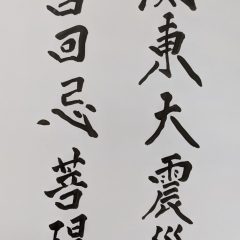 関東大震災
回忌菩提